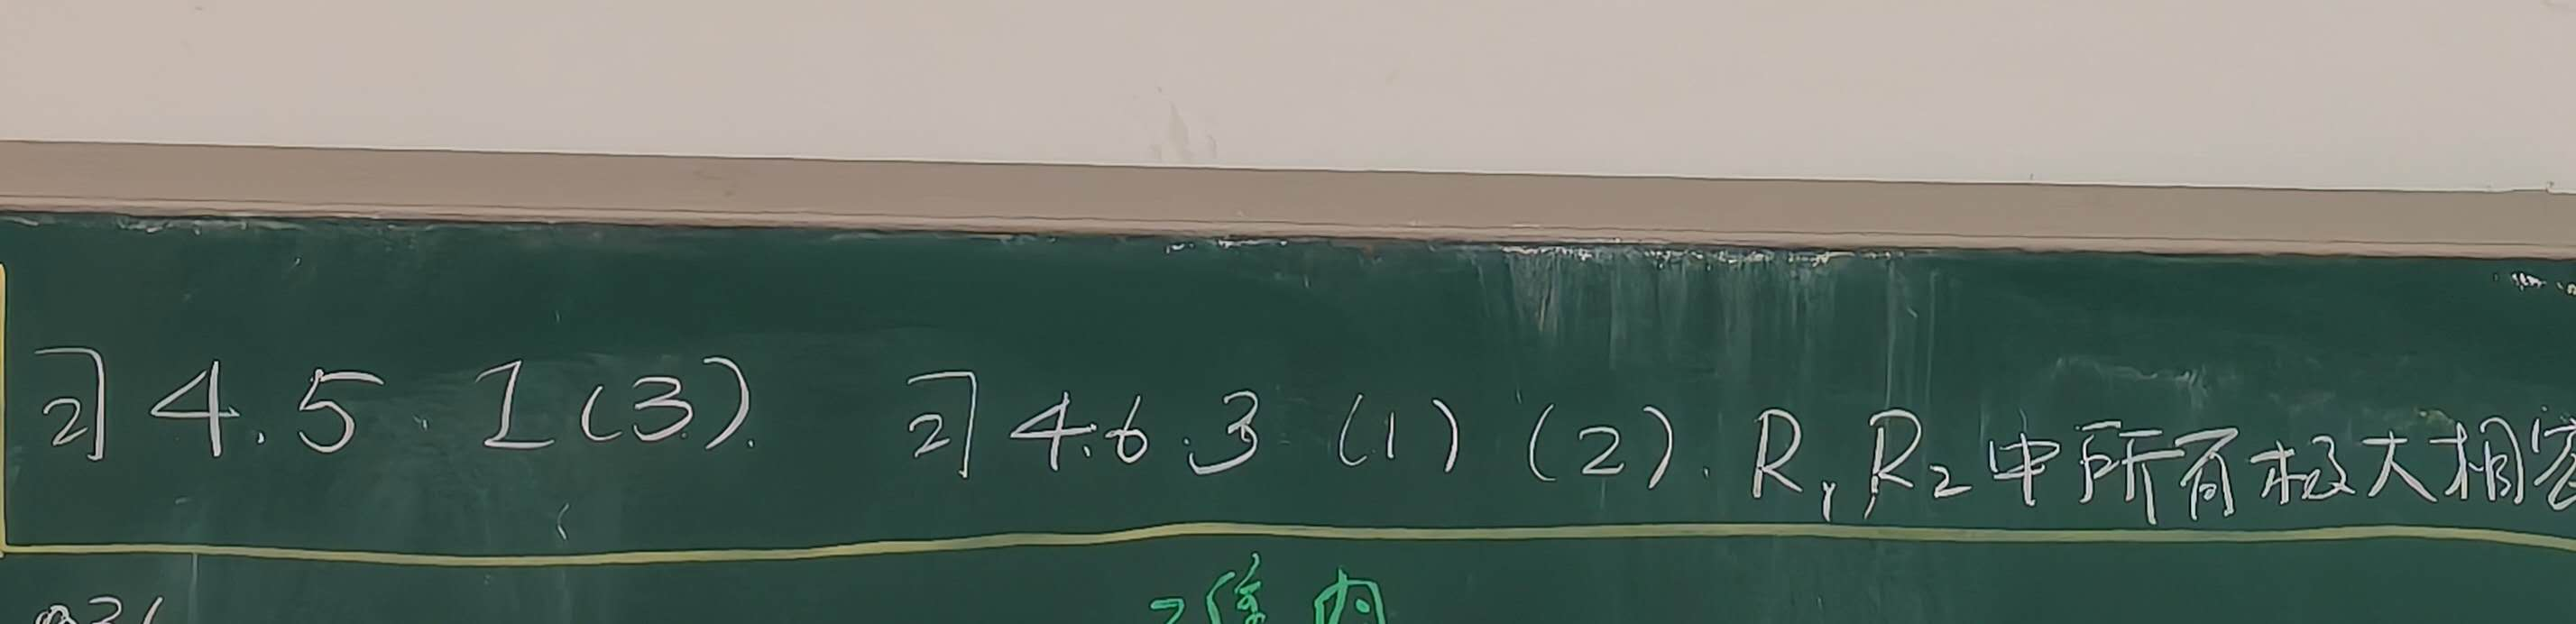 习4.5.1(3).  习4.6.3 (1) (2). R₁,R₂中所有极大相容